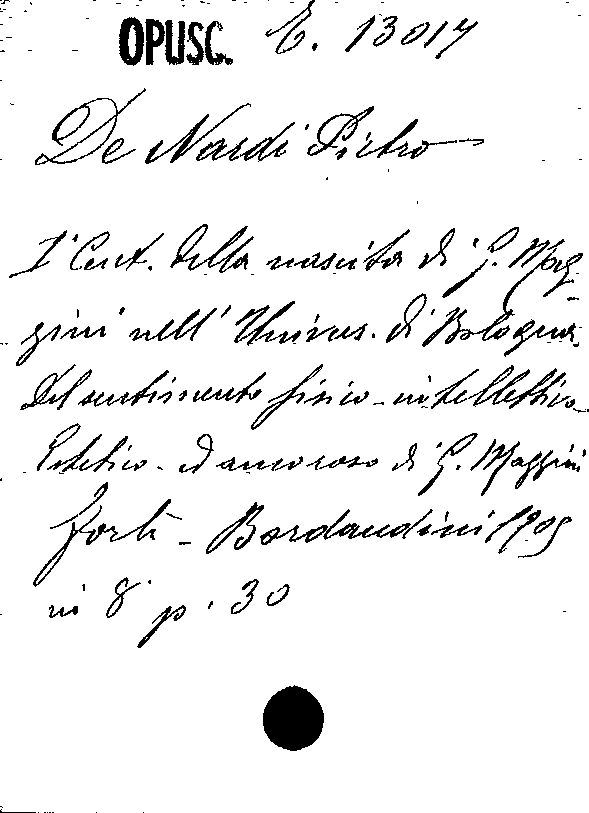 OPUSC. E. 13017
De Nardi Pietro
I° Cent. della nascita di G. Mag-
gini nell' Univers. di Bologna.
Del sentimento fisico-intellettivo
Estetico-ed amoroso di G. Maggini
Forlì - Bordandini 1905
in 8° p. 30